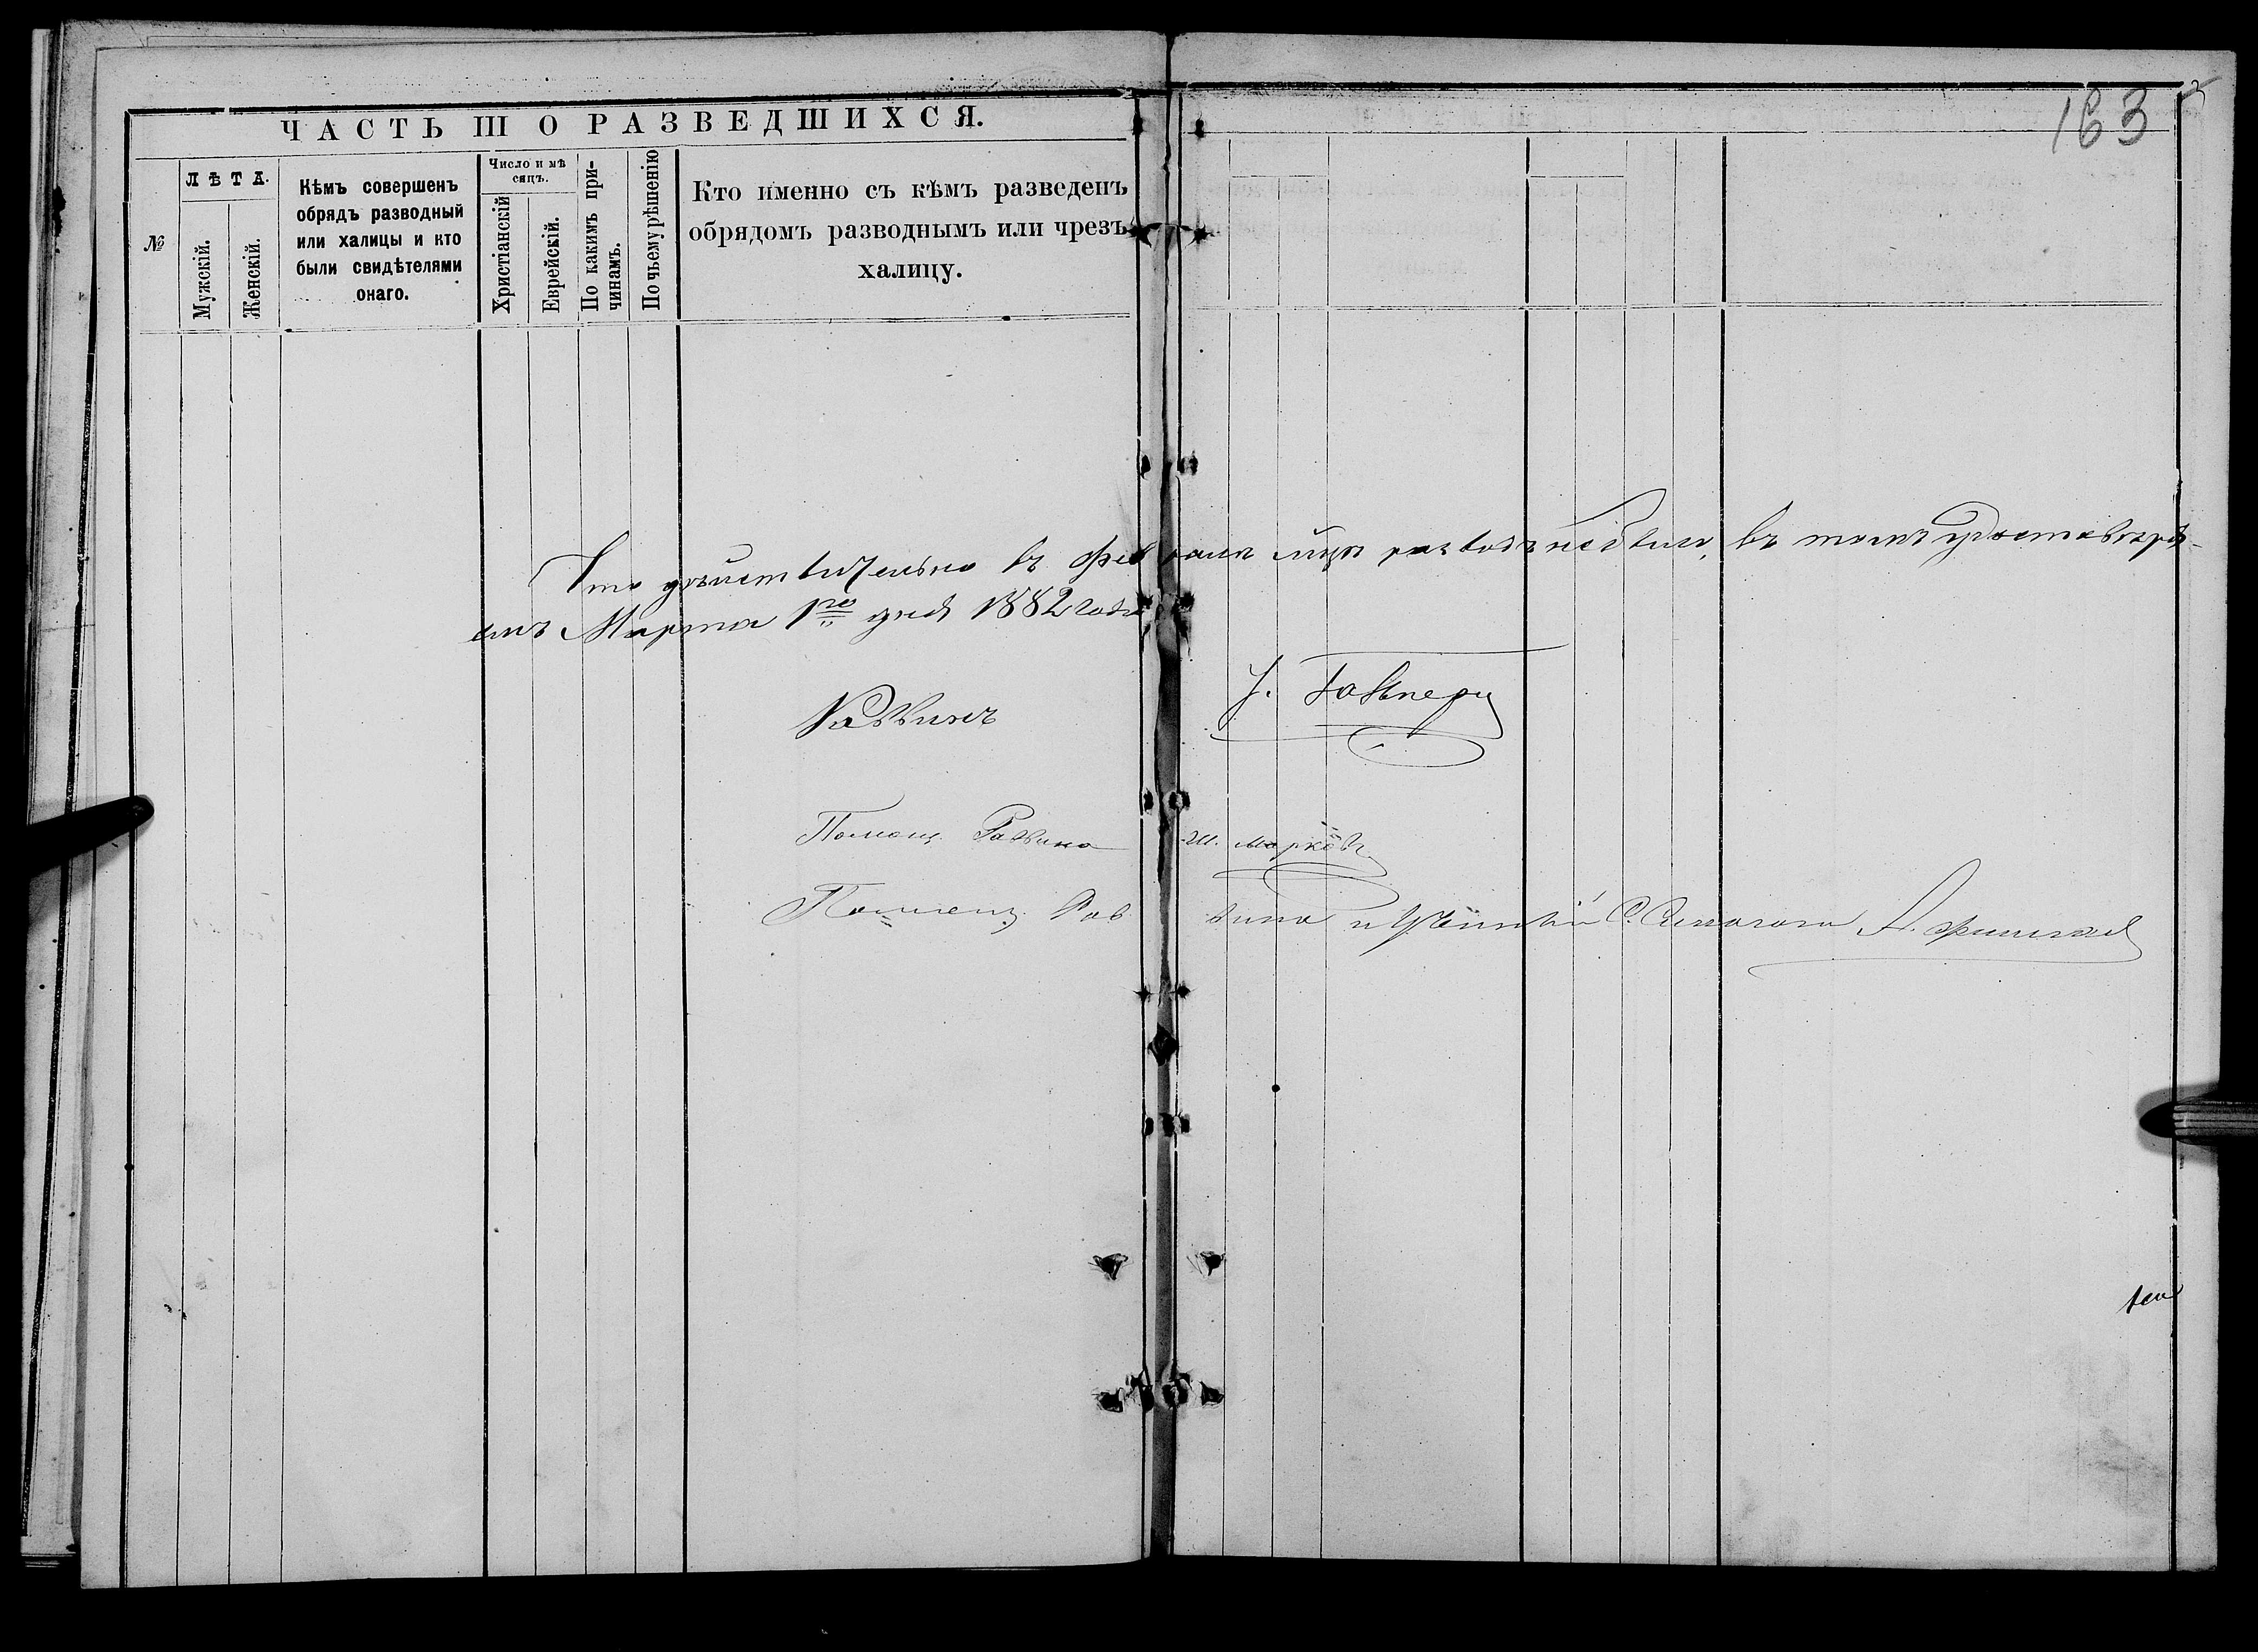 163
ЧАСТЬ III О РАЗВЕДШИХСЯ.
№
ЛѢТА.
Мужскій.
Женскій.
Кѣмъ совершенъ
обрядъ разводный
или халицы и кто
были свидѣтелями
онаго.
Число и мѣ
сяцъ.
Христіанскій
Еврейскій.
По какимъ при-
чинамъ.
По чьему рѣшенію
Кто именно съ кѣмъ разведенъ
обрядомъ разводнымъ или чрезъ
халицу.
Что дѣйствительно въ Февралѣ м-цѣ разводъ не было, въ томъ удостовѣря-
емъ Марта 1го дня 1882 года
Раввинъ
Помощ. Раввина Ш. Марковъ
Помощ. Раввина и Ученый С. Синагоги А.